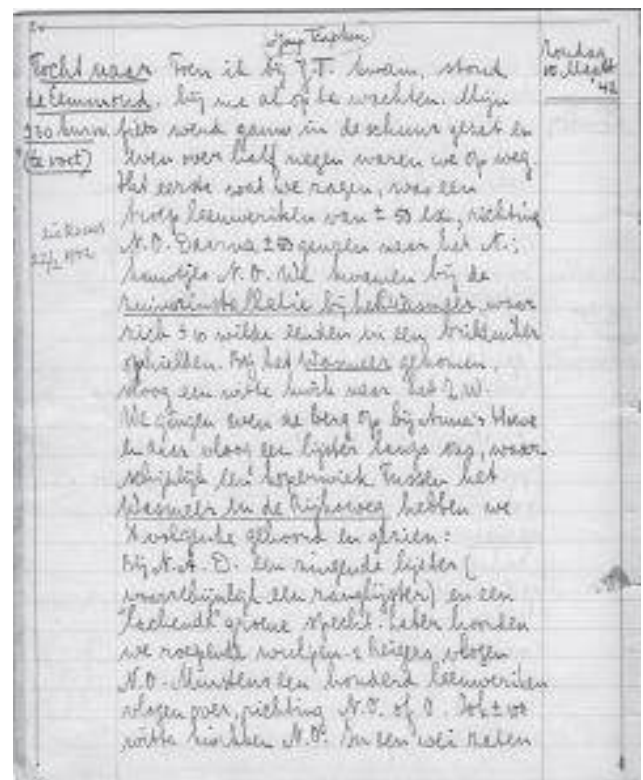 Jaap Taapken
Zondag
15 Maart
'42
Tocht naar
de Eemmond.
(te voet)
Toen ik bij J.T. kwam, stond
hij me al op te wachten. Mijn
fiets werd gauw in de schuur gezet en
even over half negen waren we op weg.
Het eerste wat we zagen, was een
troep leeuweriken van ± 50 ex., richting
N.O. Daarna ± 50 gingen naar het N.;
kauwtjes N.O. We kwamen bij de
zuiverinstallatie bij het Wasmeer, waar
zich ± 10 wilde eenden in een
ophielden. Bij het Wasmeer gekomen,
vloog een witte kwik naar het Z.W.
We gingen even de berg op bij Anna's Hoeve
en daar vloog een lijster langs ons, waar-
schijnlijk een koperwiek. Tussen het
Wasmeer en de Rijksweg hebben we
't volgende gehoord en gezien:
Bij N.A.D. een zingende lijster (
waarschijnlijk een zanglijster) en een
"lachende" groene specht. Later hoorden
we roepende wulpen. 2 reigers vlogen
N.O. Minstens een honderd leeuweriken
vlogen over, richting N.O. of O. Ook ± 100
witte kwikken N.O. In een wei zaten